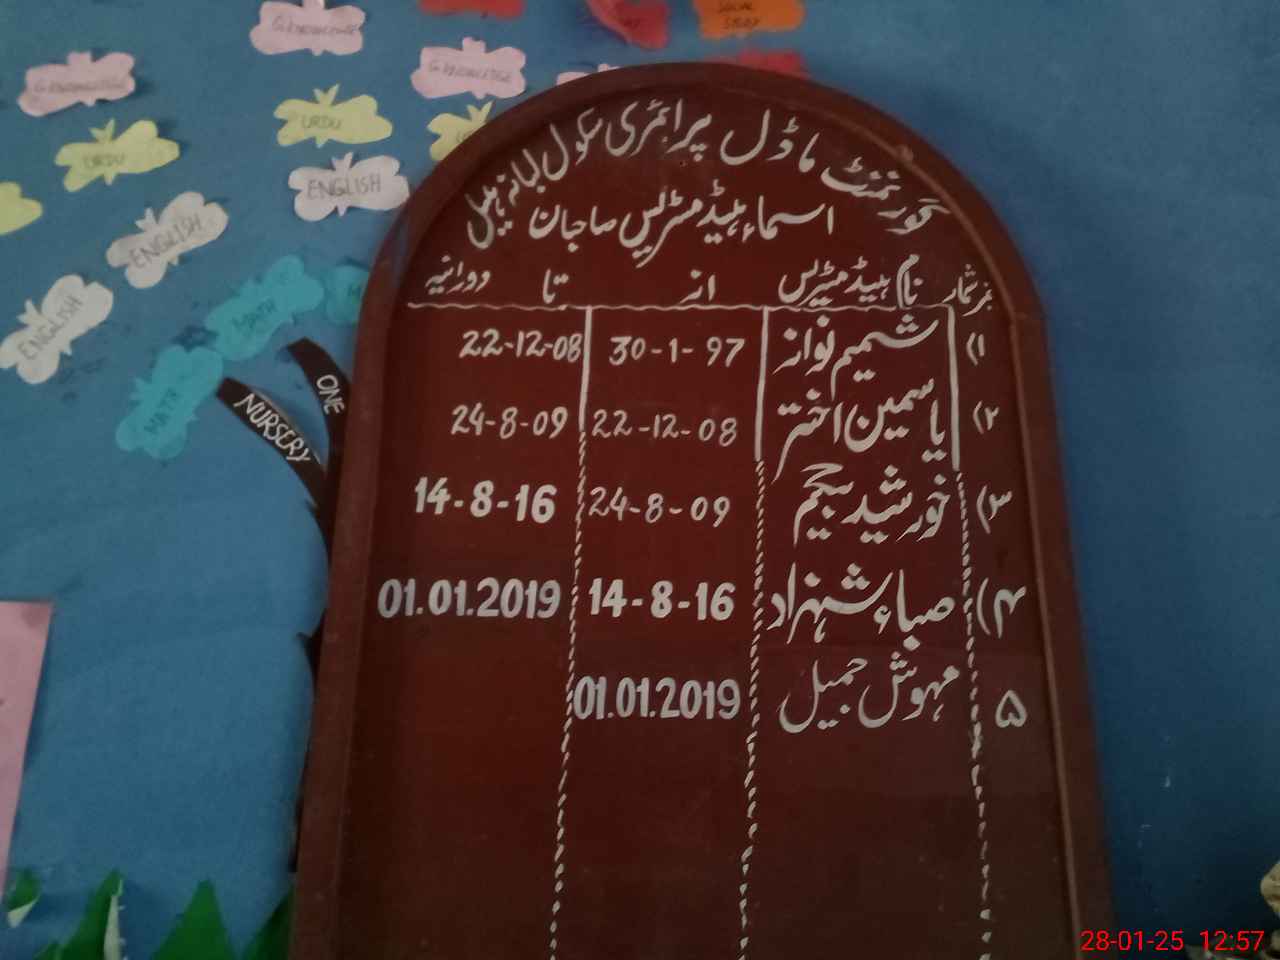 G.KNOWLEDGE
SOCIAL STUDY
G.KNOWLEDGE
G.KNOWLEDGE
URDU
URDU
ENGLISH
ENGLISH
ENGLISH
MATH
MATH
ONE
NURSERY
گورنمنٹ ماڈل پرائمری سکول لبانہ
اسماء ہیڈ مسٹریس صاحبان
نمبر شمار نام ہیڈ مسٹریس از تا دورانیہ
(۱ شمیم نواز 30-1-97 22-12-08
(۲ یاسمین اختر 22-12-08 24-8-09
(۳ خورشید بیگم 24-8-09 14-8-16
(۴ صباء شہزاد 14-8-16 01.01.2019
۵ مہوش جمیل 01.01.2019
28-01-25 12:57